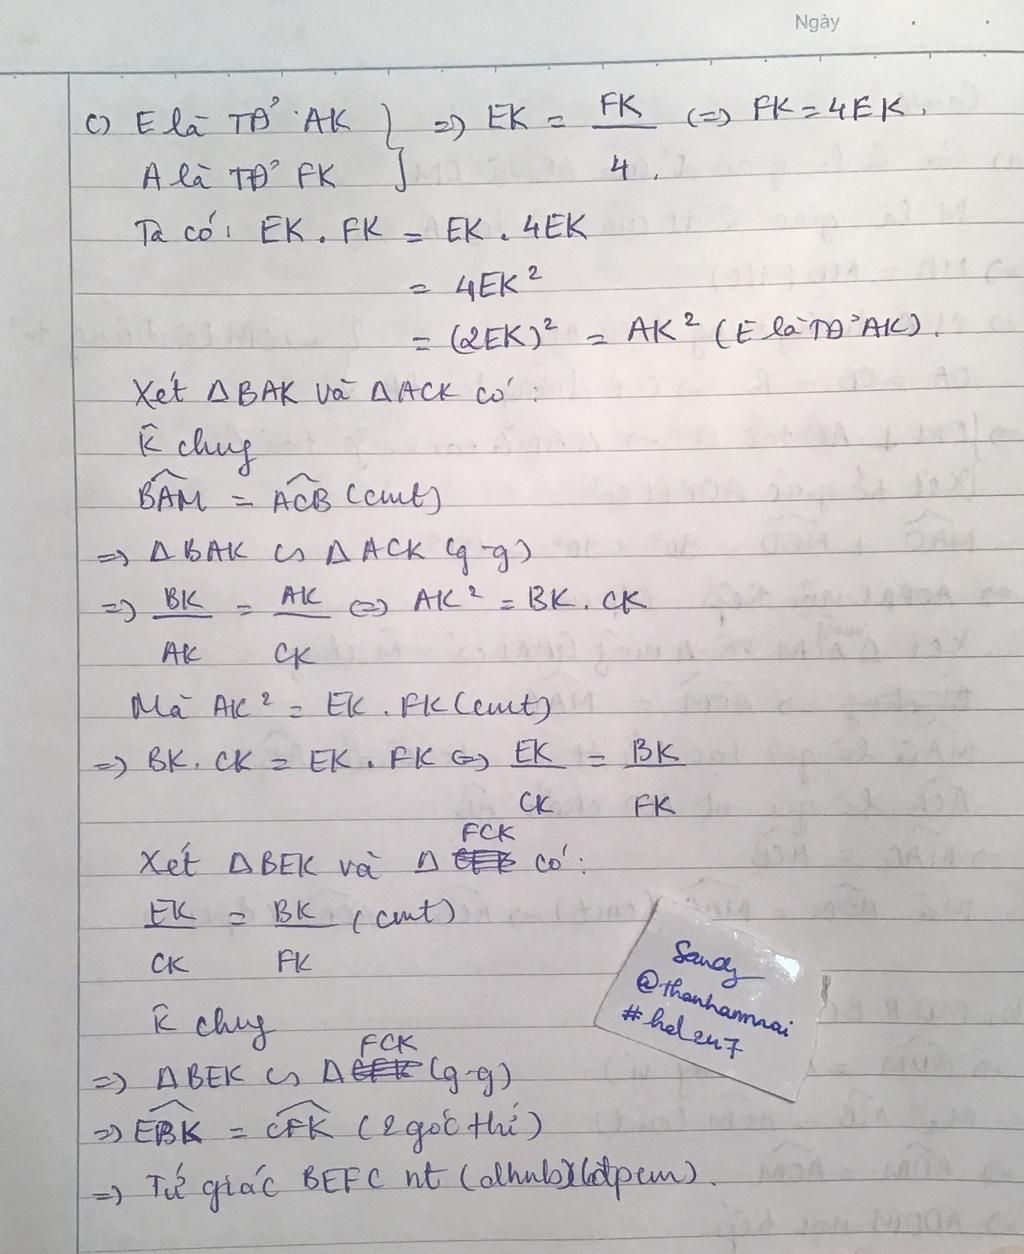 Ngày
c) E là TĐ' AK } => EK = FK/4 <=> FK = 4EK.
A là TĐ' FK
Ta có: EK . FK = EK . 4EK
= 4EK²
= (2EK)² = AK² (E là TĐ' AK).
Xét ΔBAK và ΔACK có:
K̂ chung
BAM = ACB (cmt)
=> ΔBAK ∽ ΔACK (g-g)
=> BK/AK = AK/CK <=> AK² = BK . CK
Mà AK² = EK . FK (cmt)
=> BK . CK = EK . FK <=> EK/CK = BK/FK
Xét ΔBEK và Δ FCK có:
EK/CK = BK/FK (cmt)
K̂ chung
=> ΔBEK ∽ Δ FCK (g-g)
=> EBK = CFK (2 góc t/ứ)
=> Tứ giác BEFC nt (dhnb) (đpcm).
Sandy
@thanhamnai
#hd247